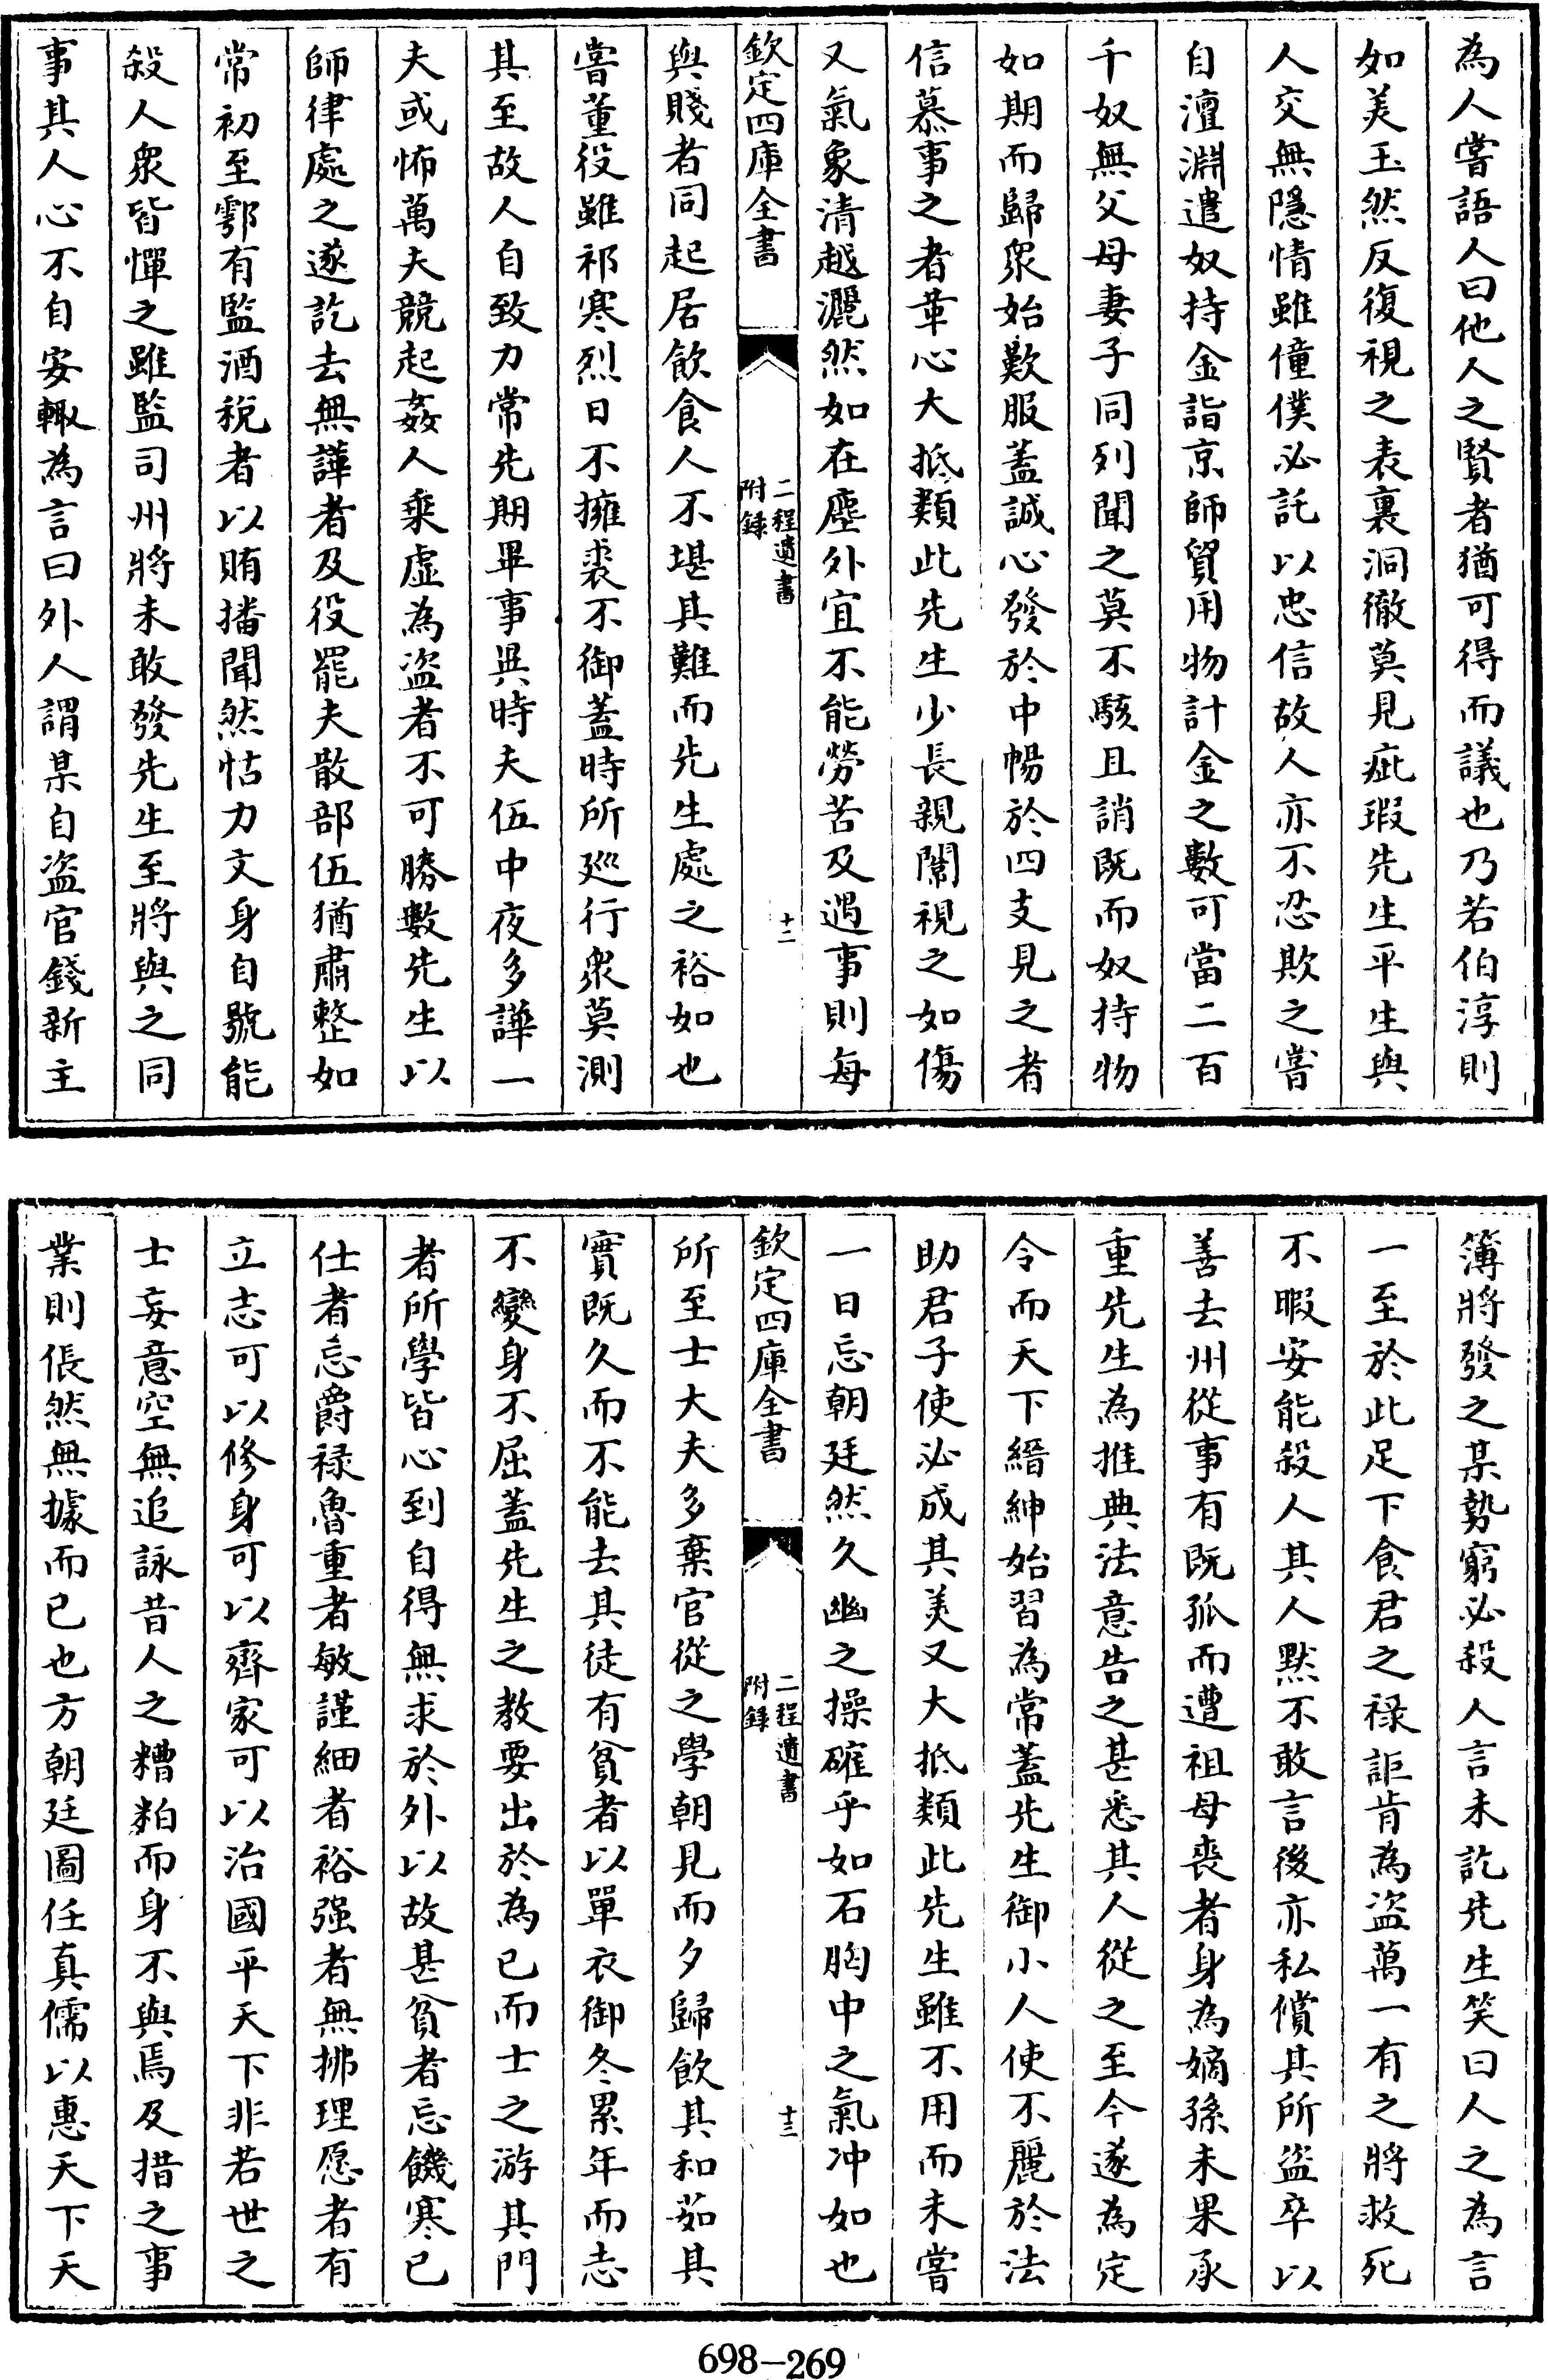 為人嘗語人曰他人之賢者猶可得而議也乃若伯淳則
如美玉然反復視之表裏洞徹莫見疵瑕先生平生與
人交無隱情雖僮僕必託以忠信故人亦不忍欺之嘗
自澶淵遣奴持金詣京師貿用物計金之數可當二百
千奴無父母妻子同列聞之莫不駭且誚既而奴持物
如期而歸衆始歎服蓋誠心發於中暢於四支見之者
信慕事之者革心大抵類此先生少長親闈視之如傷
又氣象清越灑然如在塵外宜不能勞苦及遇事則每
欽定四庫全書
二程遺書
附録
十二
與賤者同起居飲食人不堪其難而先生處之裕如也
嘗董役雖祁寒烈日不擁裘不御蓋時所巡行衆莫測
其至故人自致力常先期畢事異時夫伍中夜多譁一
夫或怖萬夫競起姦人乘虛為盜者不可勝數先生以
師律處之遂訖去無譁者及役罷夫散部伍猶肅整如
常初至鄠有監酒稅者以賄播聞然怙力文身自號能
殺人衆皆憚之雖監司州將未敢發先生至將與之同
事其人心不自安輒為言曰外人謂某自盜官錢新主
簿將發之某勢窮必殺人言未訖先生笑曰人之為言
一至於此足下食君之祿詎肯為盜萬一有之將救死
不暇安能殺人其人默不敢言後亦私償其所盜卒以
善去州從事有既孤而遭祖母喪者身為嫡孫未果承
重先生為推典法意告之甚悉其人從之至今遂為定
令而天下縉紳始習為常蓋先生御小人使不麗於法
助君子使必成其美又大抵類此先生雖不用而未嘗
一日忘朝廷然久幽之操確乎如石胸中之氣冲如也
欽定四庫全書
二程遺書
附録
十三
所至士大夫多棄官從之學朝見而夕歸飲其和茹其
實既久而不能去其徒有貧者以單衣御冬累年而志
不變身不屈蓋先生之教要出於為已而士之游其門
者所學皆心到自得無求於外以故甚貧者忘饑寒已
仕者忘爵祿魯重者敏謹細者裕强者無拂理愿者有
立志可以修身可以齊家可以治國平天下非若世之
士妄意空無追詠昔人之糟粕而身不與焉及措之事
業則倀然無據而已也方朝廷圖任真儒以惠天下天
698-269